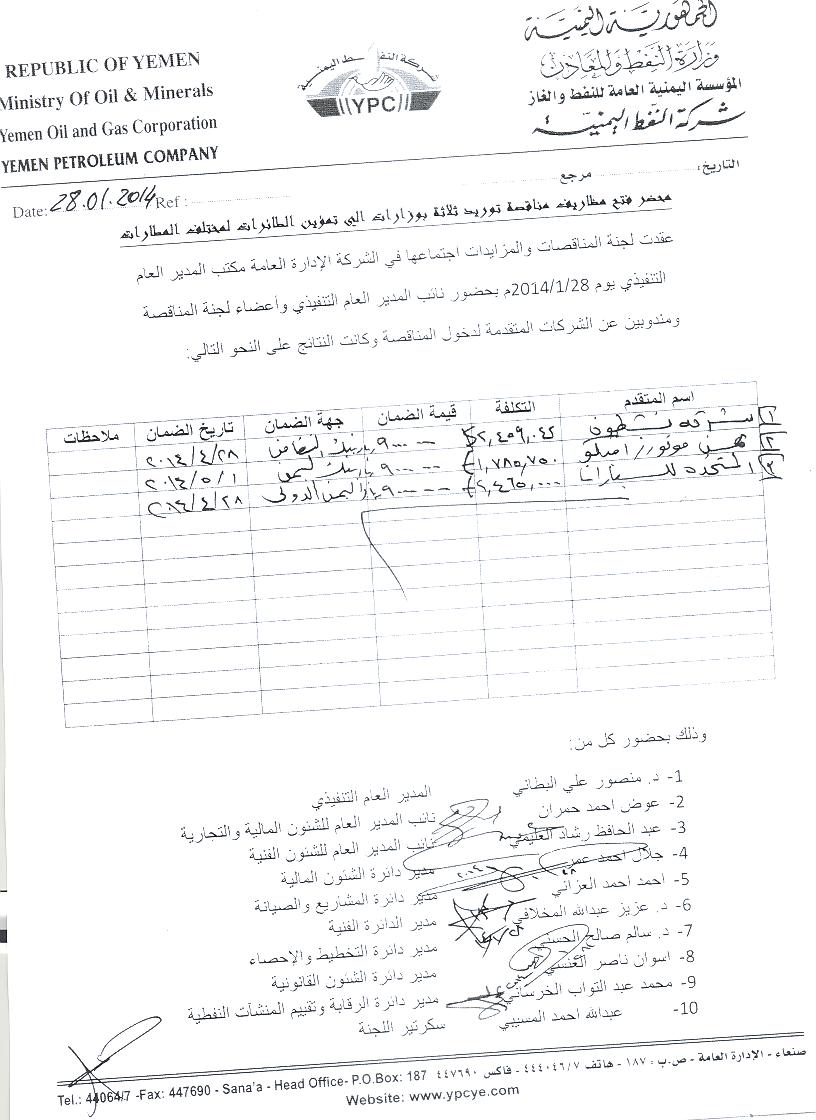 REPUBLIC OF YEMEN
Ministry Of Oil & Minerals
Yemen Oil and Gas Corporation
YEMEN PETROLEUM COMPANY
شركة النفط اليمنية
YPC
الجمهورية اليمنية
وزارة النفط والمعادن
المؤسسة اليمنية العامة للنفط والغاز
شركة النفط اليمنية
Date: 28.01.2014 Ref :
مرجع التاريخ:
محضر فتح مظاريف مناقصة توريد ثلاثة بوزارات الى تموين الطائرات لمختلف المطارات
عقدت لجنة المناقصات والمزايدات اجتماعها في الشركة الإدارة العامة مكتب المدير العام
التنفيذي يوم 2014/1/28م بحضور نائب المدير العام التنفيذي وأعضاء لجنة المناقصة
ومندوبين عن الشركات المتقدمة لدخول المناقصة وكانت النتائج على النحو التالي:
اسم المتقدم التكلفة قيمة الضمان جهة الضمان تاريخ الضمان ملاحظات
١ شركة $٢,٤٥٩,٠٤٢ ٩٠٠٠٠ بنك ٢٠١٤/٤/٢٨
٢ موتورز ١,٧٨٥,٧٥٠ ٩٠٠٠٠ بنك اليمن ٢٠١٤/٥/١
٣ المتحدة للسيارات ٢,٤٦٥,٠٠٠ ٩٠٠٠٠ اليمن الدولي ٢٠١٤/٤/٢٨
وذلك بحضور كل من:
1- د. منصور علي البطاني المدير العام التنفيذي
2- عوض احمد حمران نائب المدير العام للشئون المالية والتجارية
3- عبد الحافظ رشاد العليمي نائب المدير العام للشئون الفنية
4- جلال احمد عمر مدير دائرة الشئون المالية
5- احمد احمد العزاني مدير دائرة المشاريع والصيانة
6- د. عزيز عبدالله المخلافي مدير الدائرة الفنية
7- د. سالم صالح الحسني مدير دائرة التخطيط والإحصاء
8- اسوان ناصر العنسي مدير دائرة الشئون القانونية
9- محمد عبد التواب الخرساني مدير دائرة الرقابة وتقييم المنشآت النفطية
10- عبدالله احمد المسيبي سكرتير اللجنة
صنعاء - الإدارة العامة - ص.ب : ١٨٧ - هاتف ٤٤٤٠٤٦/٧ - فاكس ٤٤٧٦٩٠
Tel.: 44064/7 -Fax: 447690 - Sana'a - Head Office- P.O.Box: 187
Website: www.ypcye.com